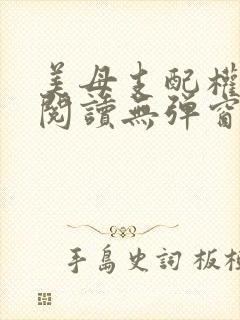 美母支配權
閱讀無彈窗
手島史詞 板杉